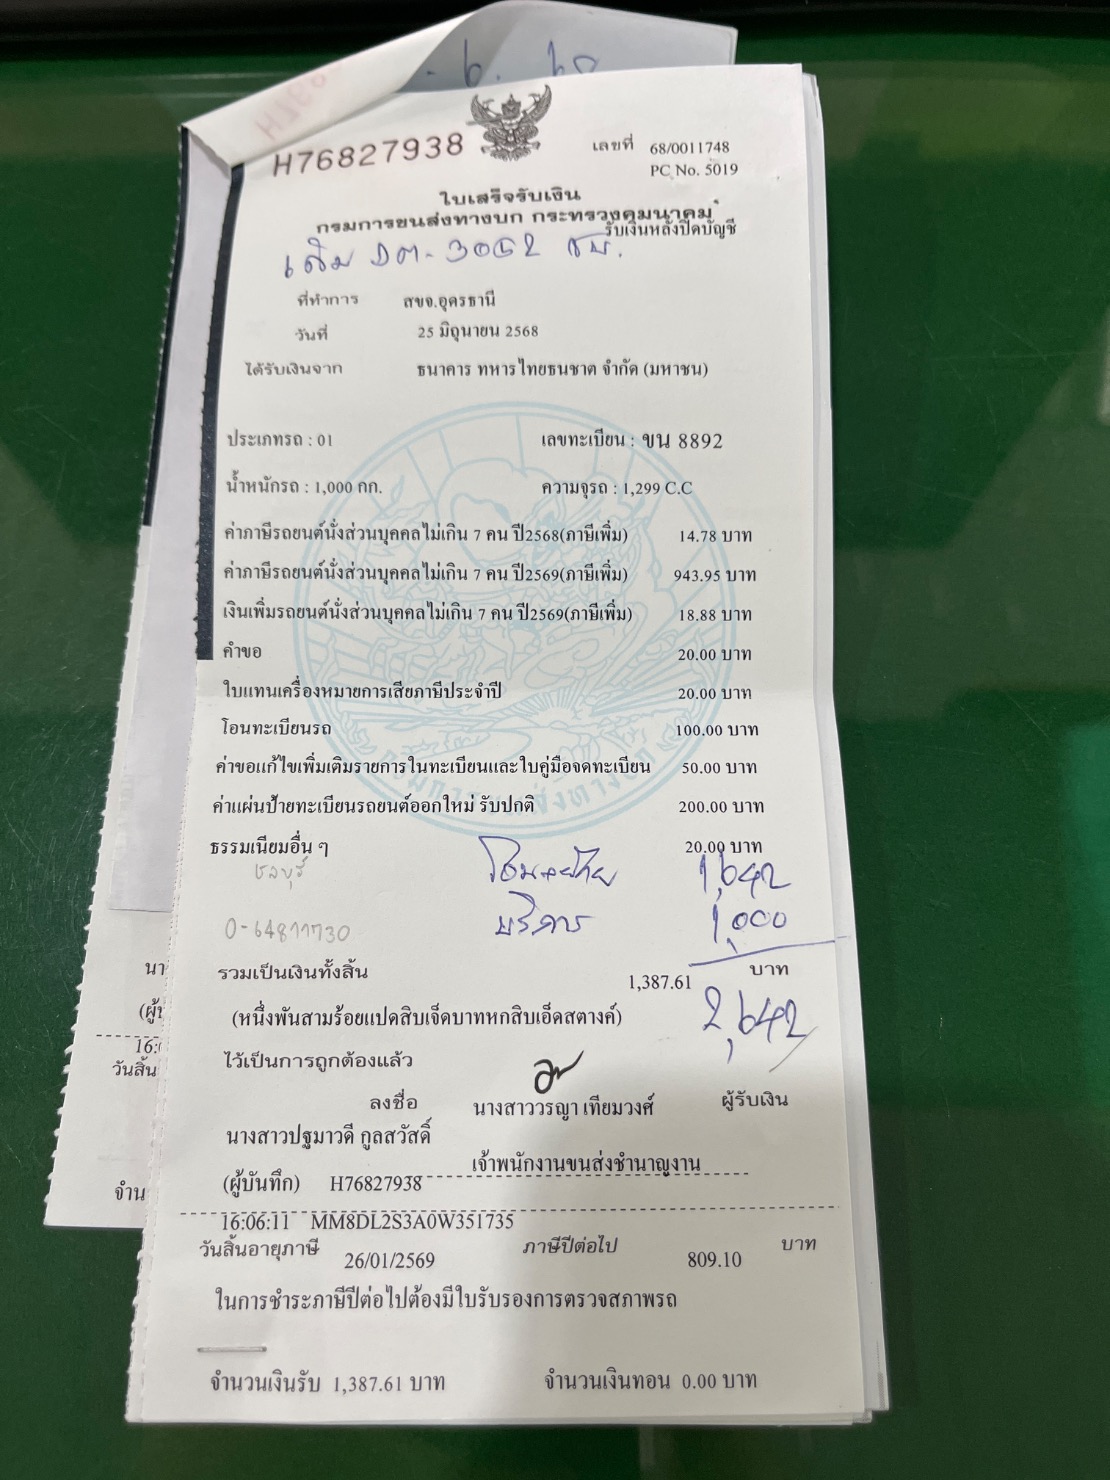 H76827938
เลขที่ 68/0011748
PC No. 5019
ใบเสร็จรับเงิน
กรมการขนส่งทางบก กระทรวงคมนาคม
รับเงินหลังปิดบัญชี
เดิม 3052 ชบ.
ที่ทำการ สขจ.อุดรธานี
วันที่ 25 มิถุนายน 2568
ได้รับเงินจาก ธนาคาร ทหารไทยธนชาต จำกัด (มหาชน)
ประเภทรถ : 01 เลขทะเบียน : ขน 8892
น้ำหนักรถ : 1,000 กก. ความจุรถ : 1,299 C.C
ค่าภาษีรถยนต์นั่งส่วนบุคคลไม่เกิน 7 คน ปี2568(ภาษีเพิ่ม) 14.78 บาท
ค่าภาษีรถยนต์นั่งส่วนบุคคลไม่เกิน 7 คน ปี2569(ภาษีเพิ่ม) 943.95 บาท
เงินเพิ่มรถยนต์นั่งส่วนบุคคลไม่เกิน 7 คน ปี2569(ภาษีเพิ่ม) 18.88 บาท
คำขอ 20.00 บาท
ใบแทนเครื่องหมายการเสียภาษีประจำปี 20.00 บาท
โอนทะเบียนรถ 100.00 บาท
ค่าขอแก้ไขเพิ่มเติมรายการในทะเบียนและใบคู่มือจดทะเบียน 50.00 บาท
ค่าแผ่นป้ายทะเบียนรถยนต์ออกใหม่ รับปกติ 200.00 บาท
ธรรมเนียมอื่น ๆ 20.00 บาท
ชลบุรี 1,642
บริการ 1,000
รวมเป็นเงินทั้งสิ้น 1,387.61 บาท
(หนึ่งพันสามร้อยแปดสิบเจ็ดบาทหกสิบเอ็ดสตางค์) 2,642
ไว้เป็นการถูกต้องแล้ว
ลงชื่อ นางสาววรญา เทียมวงศ์ ผู้รับเงิน
นางสาวปฐมาวดี กูลสวัสดิ์
เจ้าพนักงานขนส่งชำนาญงาน
(ผู้บันทึก) H76827938
16:06:11 MM8DL2S3A0W351735
วันสิ้นอายุภาษี 26/01/2569 ภาษีปีต่อไป 809.10 บาท
ในการชำระภาษีปีต่อไปต้องมีใบรับรองการตรวจสภาพรถ
จำนวนเงินรับ 1,387.61 บาท จำนวนเงินทอน 0.00 บาท